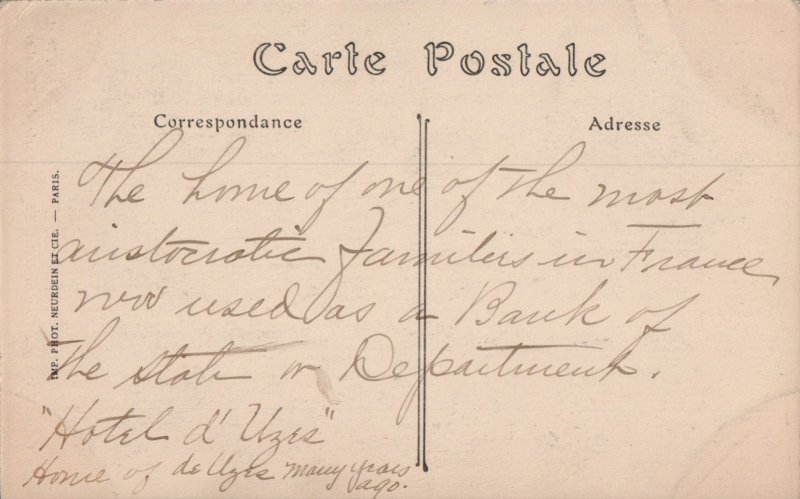 Carte Postale
Correspondance
Adresse
IMP. PHOT. NEURDEIN ET CIE. — PARIS.
The home of one of the most
aristocratic Families in France
now used as a Bank of
the State or Department.
"Hotel d'Uzes"
Home of de Uzes many years
ago.